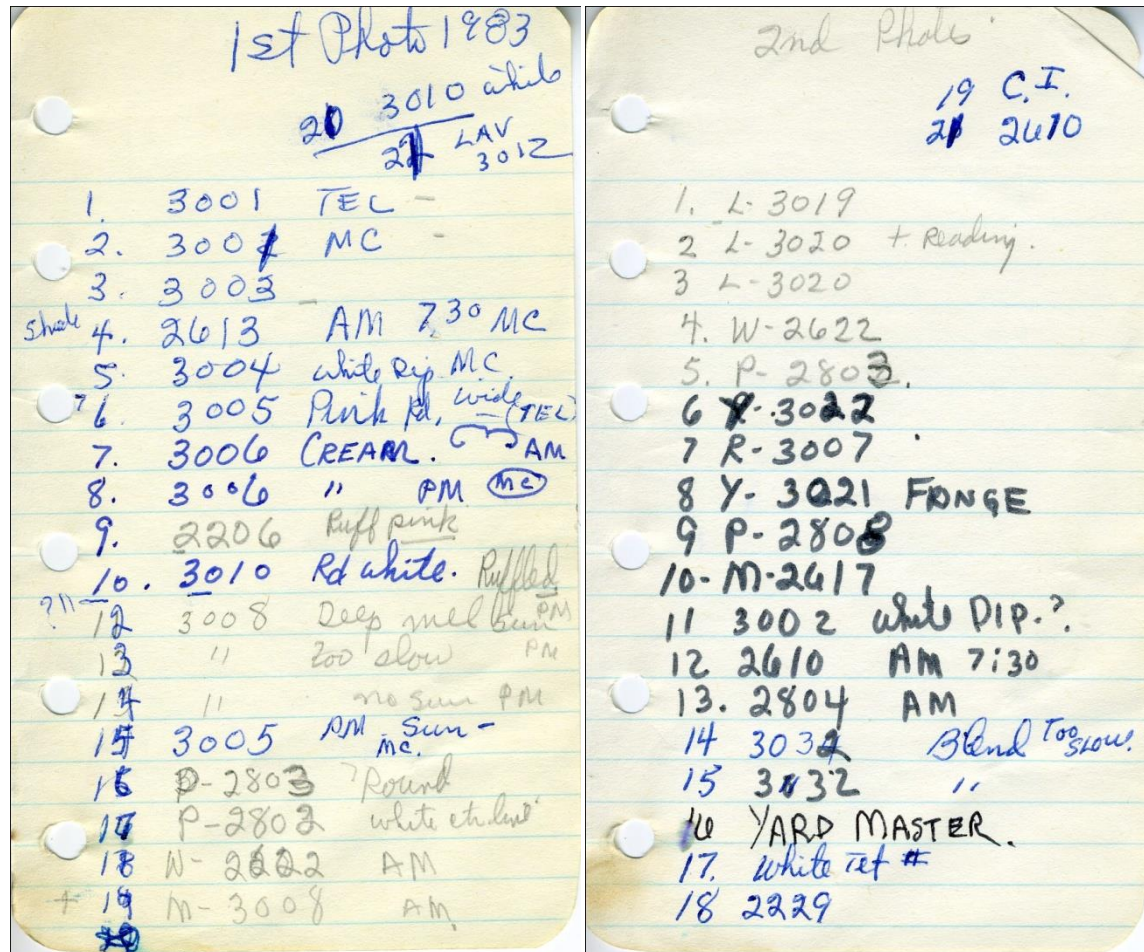 1st Photo 1983
20 3010 white
22 LAV
3012
1. 3001 TEL -
2. 3002 MC -
3. 3003 -
Shade 4. 2613 AM 730 MC
5. 3004 white Dip MC.
? 6. 3005 Pink Rd, wide (TEL)
7. 3006 CREAM. AM
8. 3006 " PM MC
9. 2206 Ruff pink
10. 3010 Rd white. Ruffled
?11 PM
12 3008 Deep mel Sun
13 " Too slow PM
14 " no sun PM
15 3005 PM Sun -
MC.
16 P-2803 ? Round
17 P-2802 white
18 W-2622 AM
+ 19 M-3008 AM
2nd Photos
19 C.I.
21 2610
1. L-3019
2 L-3020 + Reading.
3 L-3020
4. W-2622
5. P-2803.
6 3022
7 R-3007
8 Y-3021 FONGE
9 P-2808
10-M-2617
11 3002 white DIP.?
12 2610 AM 7:30
13. 2804 AM
14 3032 Blend Too slow.
15 3032 "
16 YARD MASTER.
17. White Tet #
18 2229